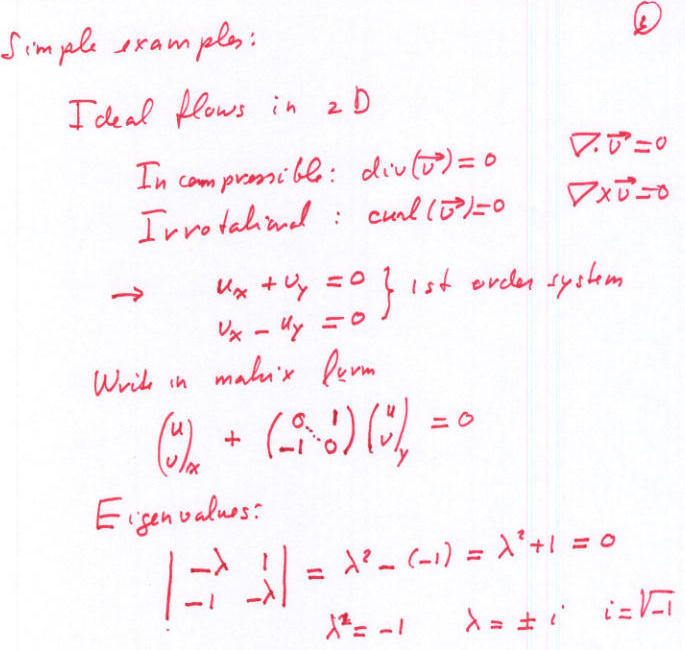 Simple examples:
Ideal flows in 2D
Incompressible: div(v⃗)=0 ∇·v⃗=0
Irrotational: curl(v⃗)=0 ∇×v⃗=0
→ u_x + v_y = 0 } 1st order system
v_x − u_y = 0
Write in matrix form
(u v)_x + (0 1 −1 0)(u v)_y = 0
Eigenvalues:
|−λ 1 −1 −λ| = λ² − (−1) = λ² + 1 = 0
λ² = −1 λ = ± i i = √−1